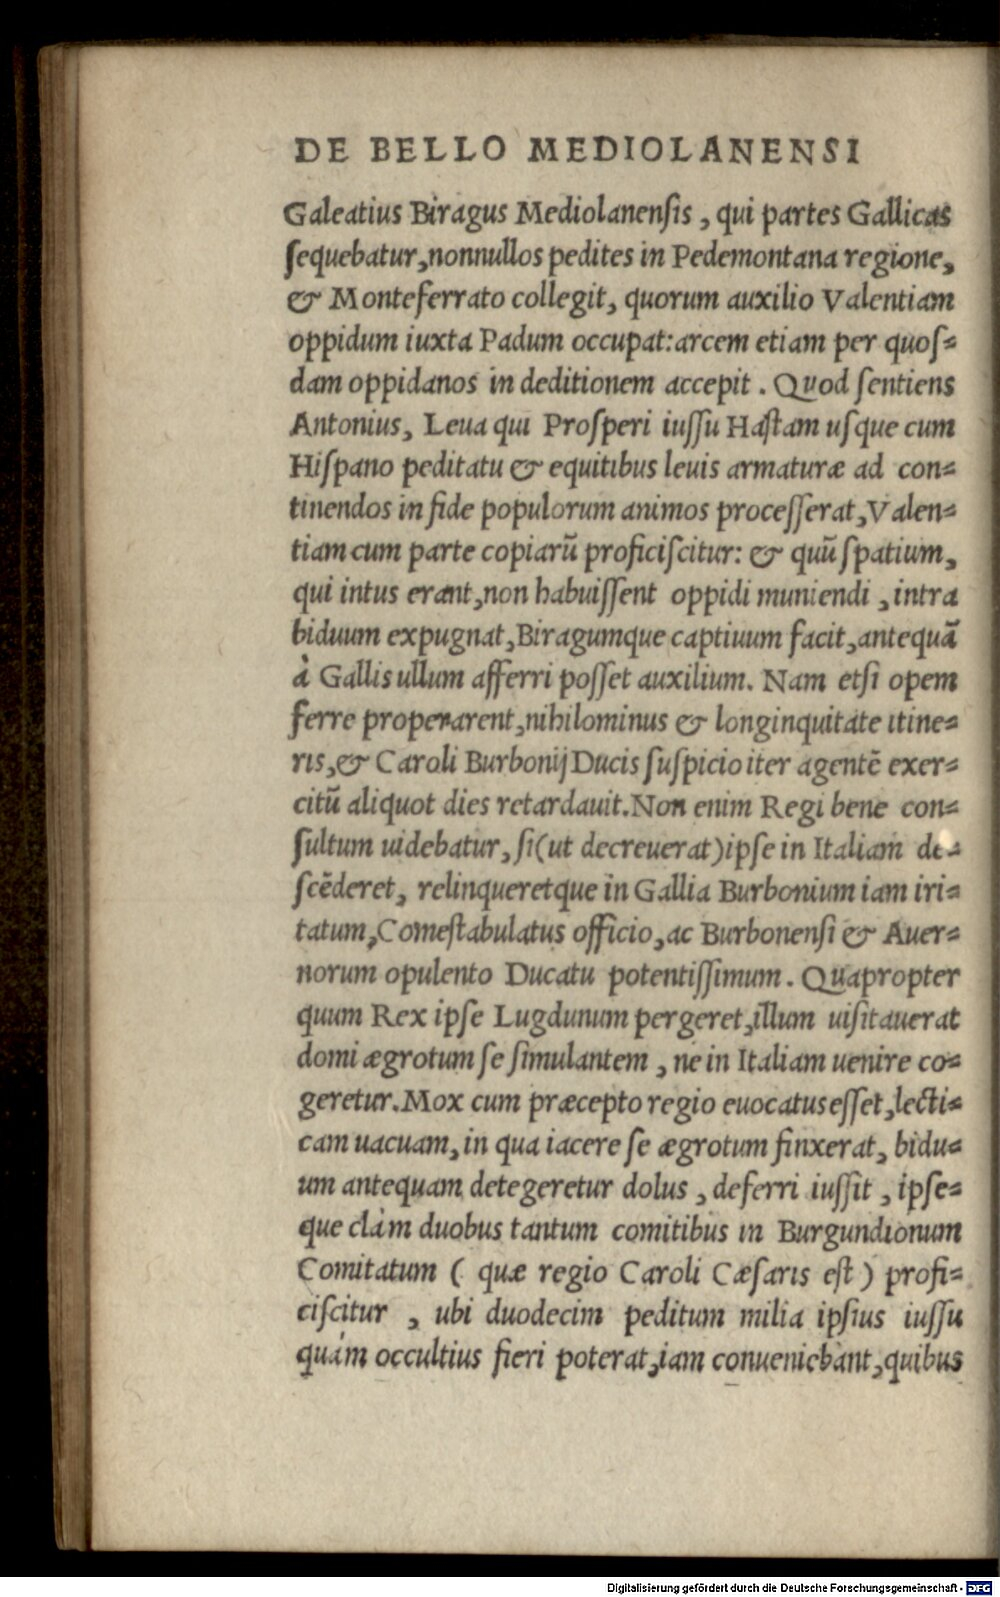 DE BELLO MEDIOLANENSI
Galeatius Biragus Mediolanenſis, qui partes Gallicas
ſequebatur, nonnullos pedites in Pedemontana regione,
& Monteferrato collegit, quorum auxilio Valentiam
oppidum iuxta Padum occupat: arcem etiam per quoſ=
dam oppidanos in deditionem accepit. Quod ſentiens
Antonius, Leua qui Proſperi iuſſu Haſtam uſque cum
Hiſpano peditatu & equitibus leuis armaturæ ad con=
tinendos in fide populorum animos proceſſerat, Valen=
tiam cum parte copiarū proficiſcitur: & quū ſpatium,
qui intus erant, non habuiſſent oppidi muniendi, intra
biduum expugnat, Biragumque captiuum facit, antequā
à Gallis ullum afferri poſſet auxilium. Nam etſi opem
ferre properarent, nihilominus & longinquitate itine=
ris, & Caroli Burbonij Ducis ſuſpicio iter agentē exer=
citū aliquot dies retardauit. Non enim Regi bene con=
ſultum uidebatur, ſi (ut decreuerat) ipſe in Italiam de=
ſcēderet, relinqueretque in Gallia Burbonium iam iri=
tatum, Comeſtabulatus officio, ac Burbonenſi & Auer=
norum opulento Ducatu potentiſſimum. Quapropter
quum Rex ipſe Lugdunum pergeret, illum uiſitauerat
domi ægrotum ſe ſimulantem, ne in Italiam uenire co=
geretur. Mox cum præcepto regio euocatus eſſet, lecti=
cam uacuam, in qua iacere ſe ægrotum finxerat, bidu=
um antequam detegeretur dolus, deferri iuſſit, ipſe=
que clàm duobus tantum comitibus in Burgundionum
Comitatum ( quæ regio Caroli Cæſaris eſt ) profi=
ciſcitur, ubi duodecim peditum milia ipſius iuſſu
quàm occultius fieri poterat, iam conueniebant, quibus
Digitalisierung gefördert durch die Deutsche Forschungsgemeinschaft - DFG